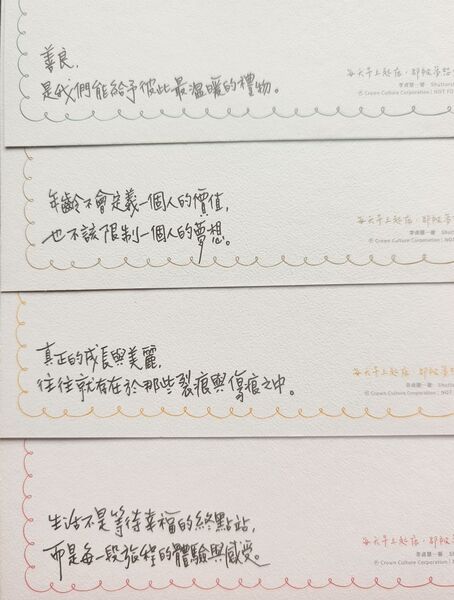 善良,
是我們能給予彼此最溫暖的禮物。
每天早上起床,都被
李貞慧一著 Shutters
© Crown Culture Corporation | NOT FO
年齡不會定義一個人的價值,
也不該限制一個人的夢想。
每天早上起床,都被夢
李貞慧一著 Shu
© Crown Culture Corporation | NOT
真正的成長與美麗,
往往就存在於那些裂痕與傷痕之中。
每天早上起床,都被
李貞慧一著 Shu
© Crown Culture Corporation | NOT
生活不是等待幸福的終點站,
而是每一段旅程的體驗與感受。
每天早上起床,都被
李貞慧一著 Shu
© Crown Culture Corporation | NOT